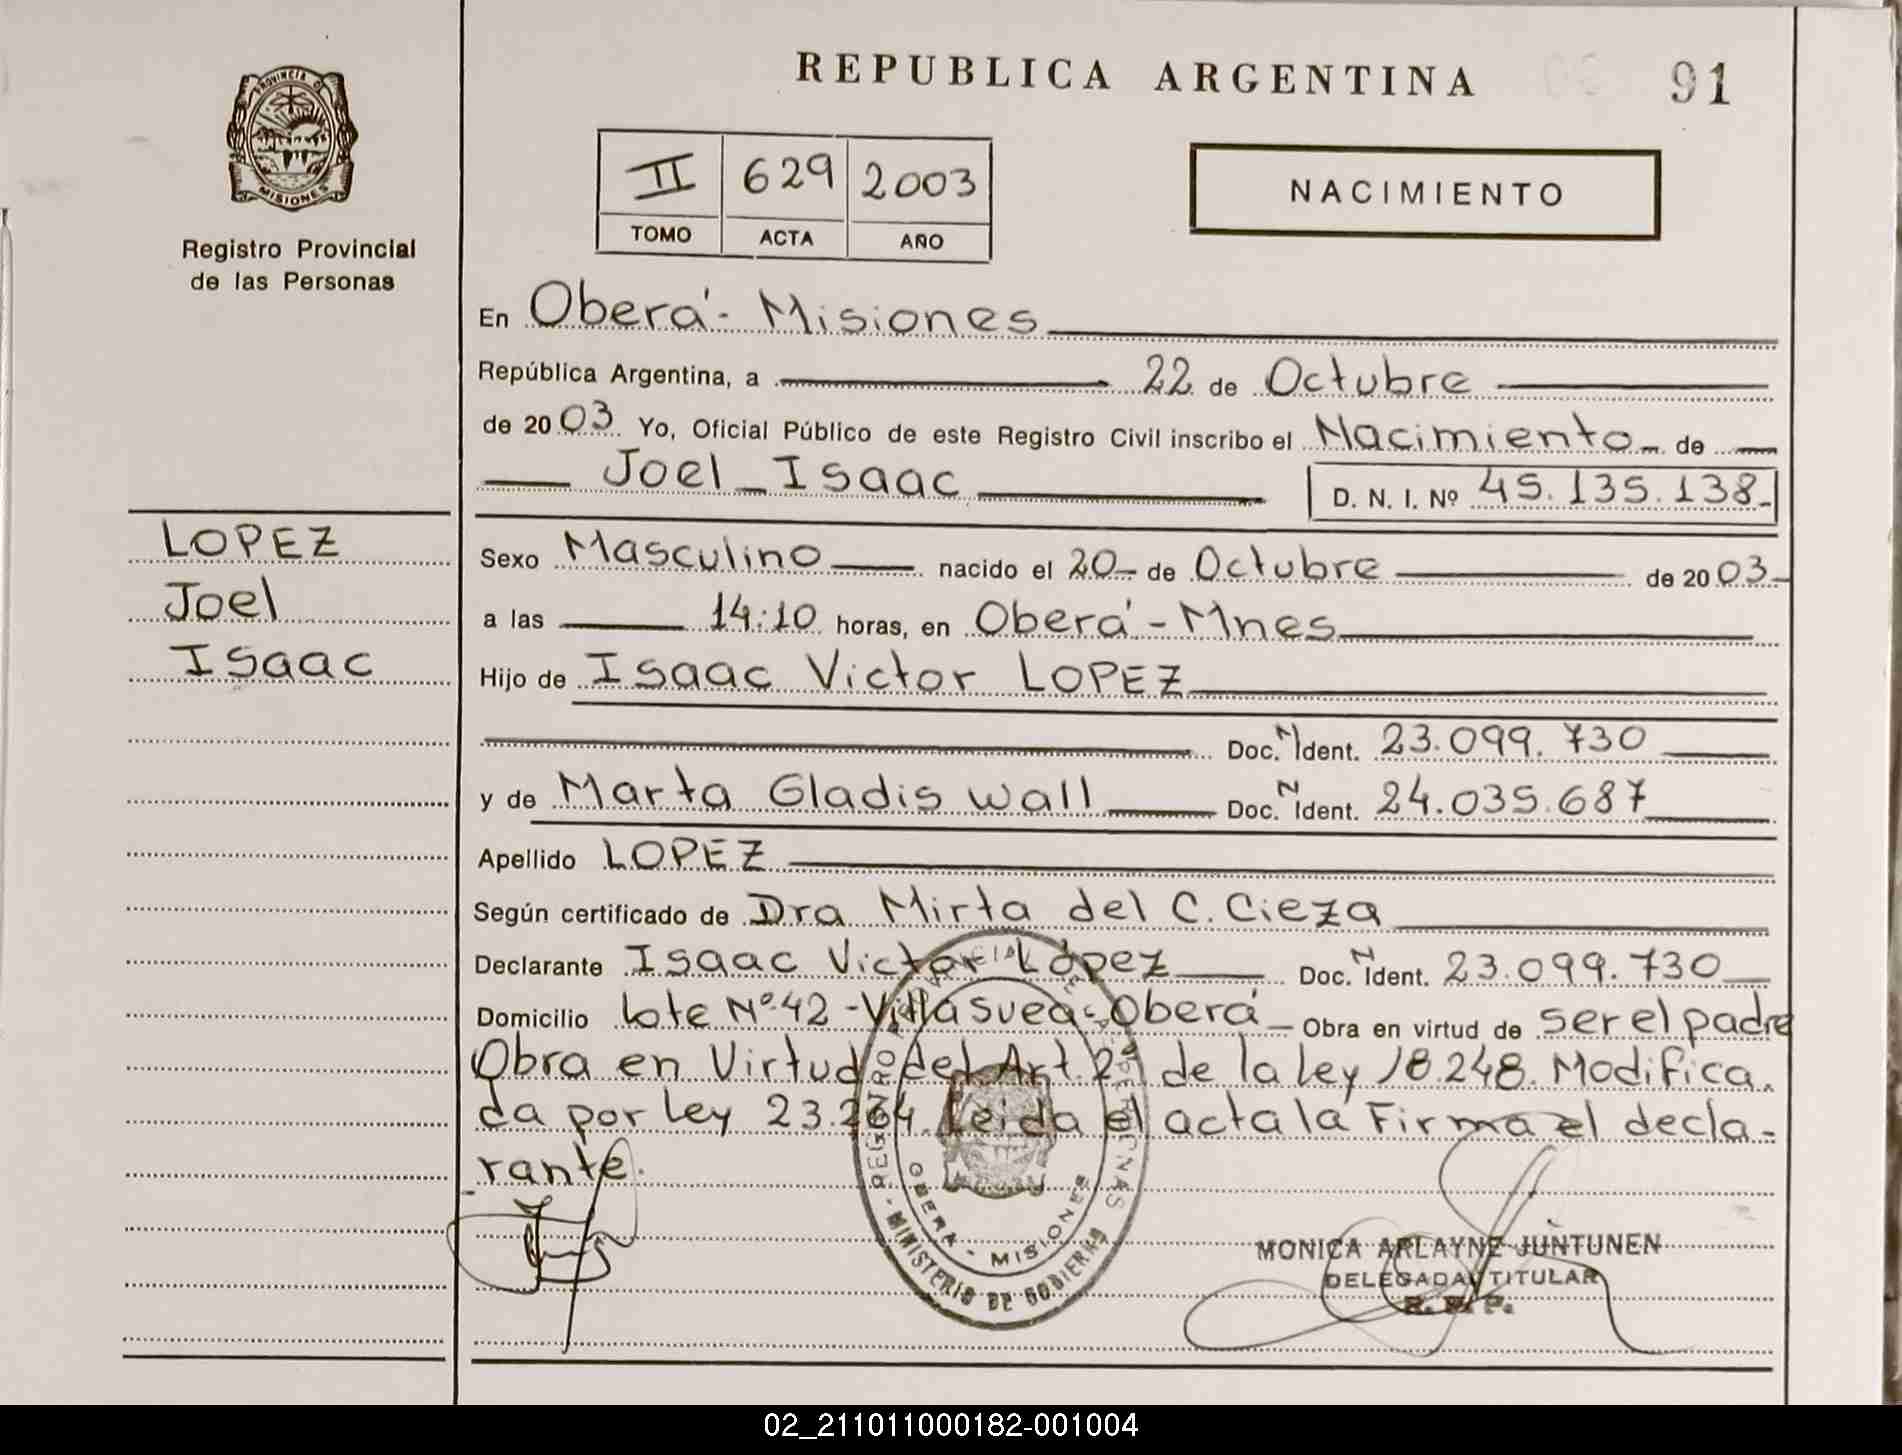 REPUBLICA ARGENTINA
91
PROVINCIA D
MISIONES
Registro Provincial
de las Personas
II 629 2003
TOMO ACTA AÑO
NACIMIENTO
En Oberá - Misiones
República Argentina, a 22 de Octubre
de 2003 Yo, Oficial Público de este Registro Civil inscribo el Nacimiento de
Joel Isaac D. N. I. Nº 45.135.138
LOPEZ
Joel
Isaac
Sexo Masculino nacido el 20 de Octubre de 2003
a las 14:10 horas, en Oberá - Mnes
Hijo de Isaac Victor LOPEZ
Doc. N Ident. 23.099.730
y de Marta Gladis Wall Doc. N Ident. 24.035.687
Apellido LOPEZ
Según certificado de Dra Mirta del C. Cieza
Declarante Isaac Victor López Doc. N Ident. 23.099.730
Domicilio Lote Nº 42 - Villa Svea - Oberá Obra en virtud de ser el padre
Obra en Virtud del Art. 2º de la ley 18.248. Modifica.
da por Ley 23.264. Leida el acta la Firma el decla-
rante.
REGISTRO
OBERA - MISIONES
- MINISTERIO DE GOBIERNO
MONICA ARLAYNE JUNTUNEN
DELEGADA TITULAR
R. P. P.
02_211011000182-001004